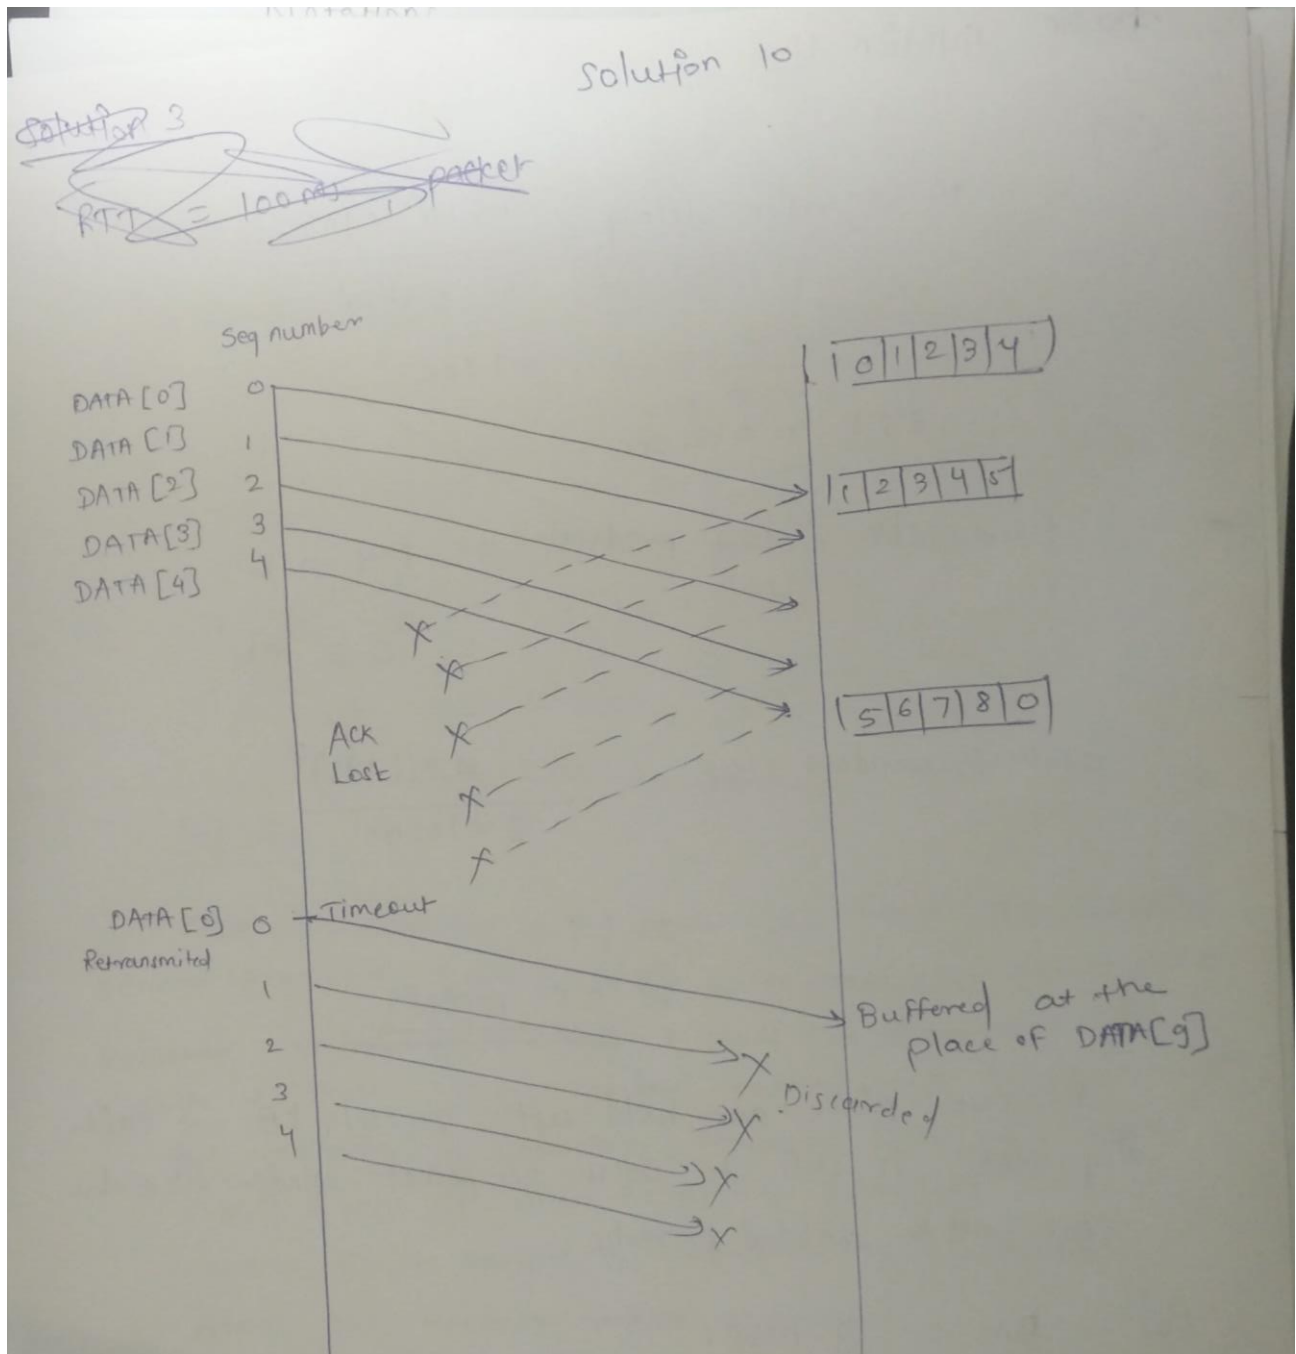 Solution 10
Solution 3
RTT = 100ms, packet
Seq number
DATA [0] 0
DATA [1] 1
DATA [2] 2
DATA [3] 3
DATA [4] 4
0 1 2 3 4
1 2 3 4 5
5 6 7 8 0
Ack
Lost
DATA [0] 0 Timeout
Retransmited
1
2
3
4
Buffered at the
place of DATA[9]
Discarded